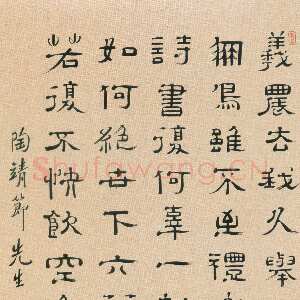 羲農去我久舉
鳥雖不至禮
詩書復何辠一
如何絕世下六
若復不快飲空
陶靖節先生
Shufawang.CN